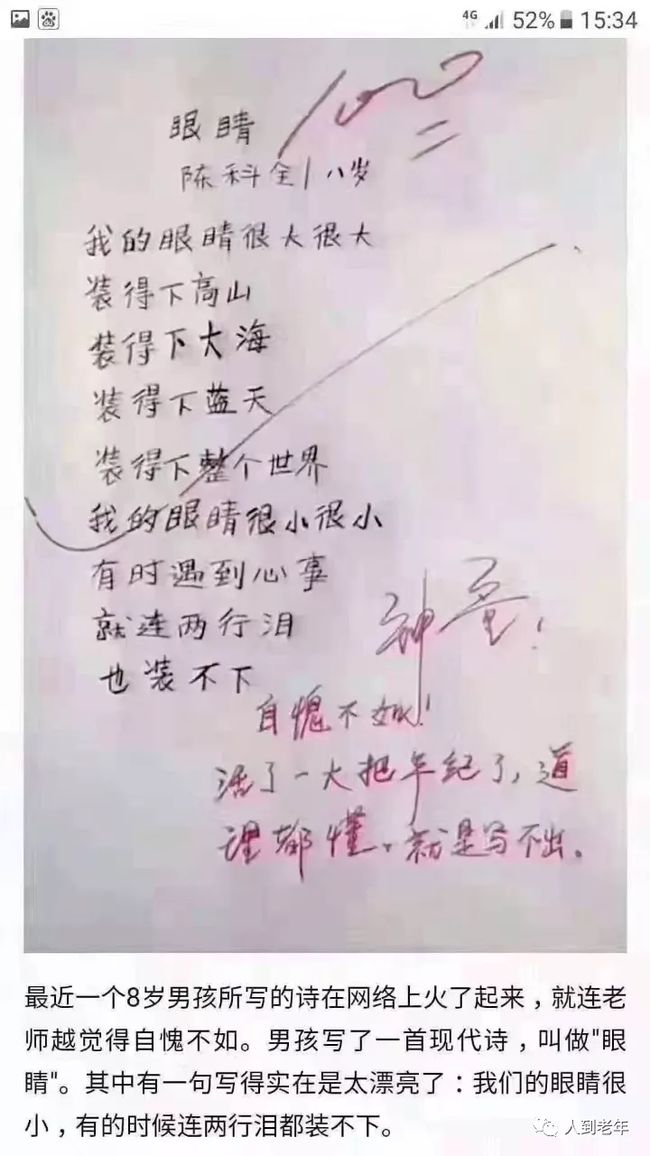 4G 52% 15:34
100
眼睛
陈科全 八岁
我的眼睛很大很大
装得下高山
装得下大海
装得下蓝天
装得下整个世界
我的眼睛很小很小
有时遇到心事
就连两行泪
也装不下
神童!
自愧不如!
活了一大把年纪了,道
理都懂。就是写不出。
最近一个8岁男孩所写的诗在网络上火了起来，就连老
师越觉得自愧不如。男孩写了一首现代诗，叫做"眼
睛"。其中有一句写得实在是太漂亮了：我们的眼睛很
小，有的时候连两行泪都装不下。
人到老年